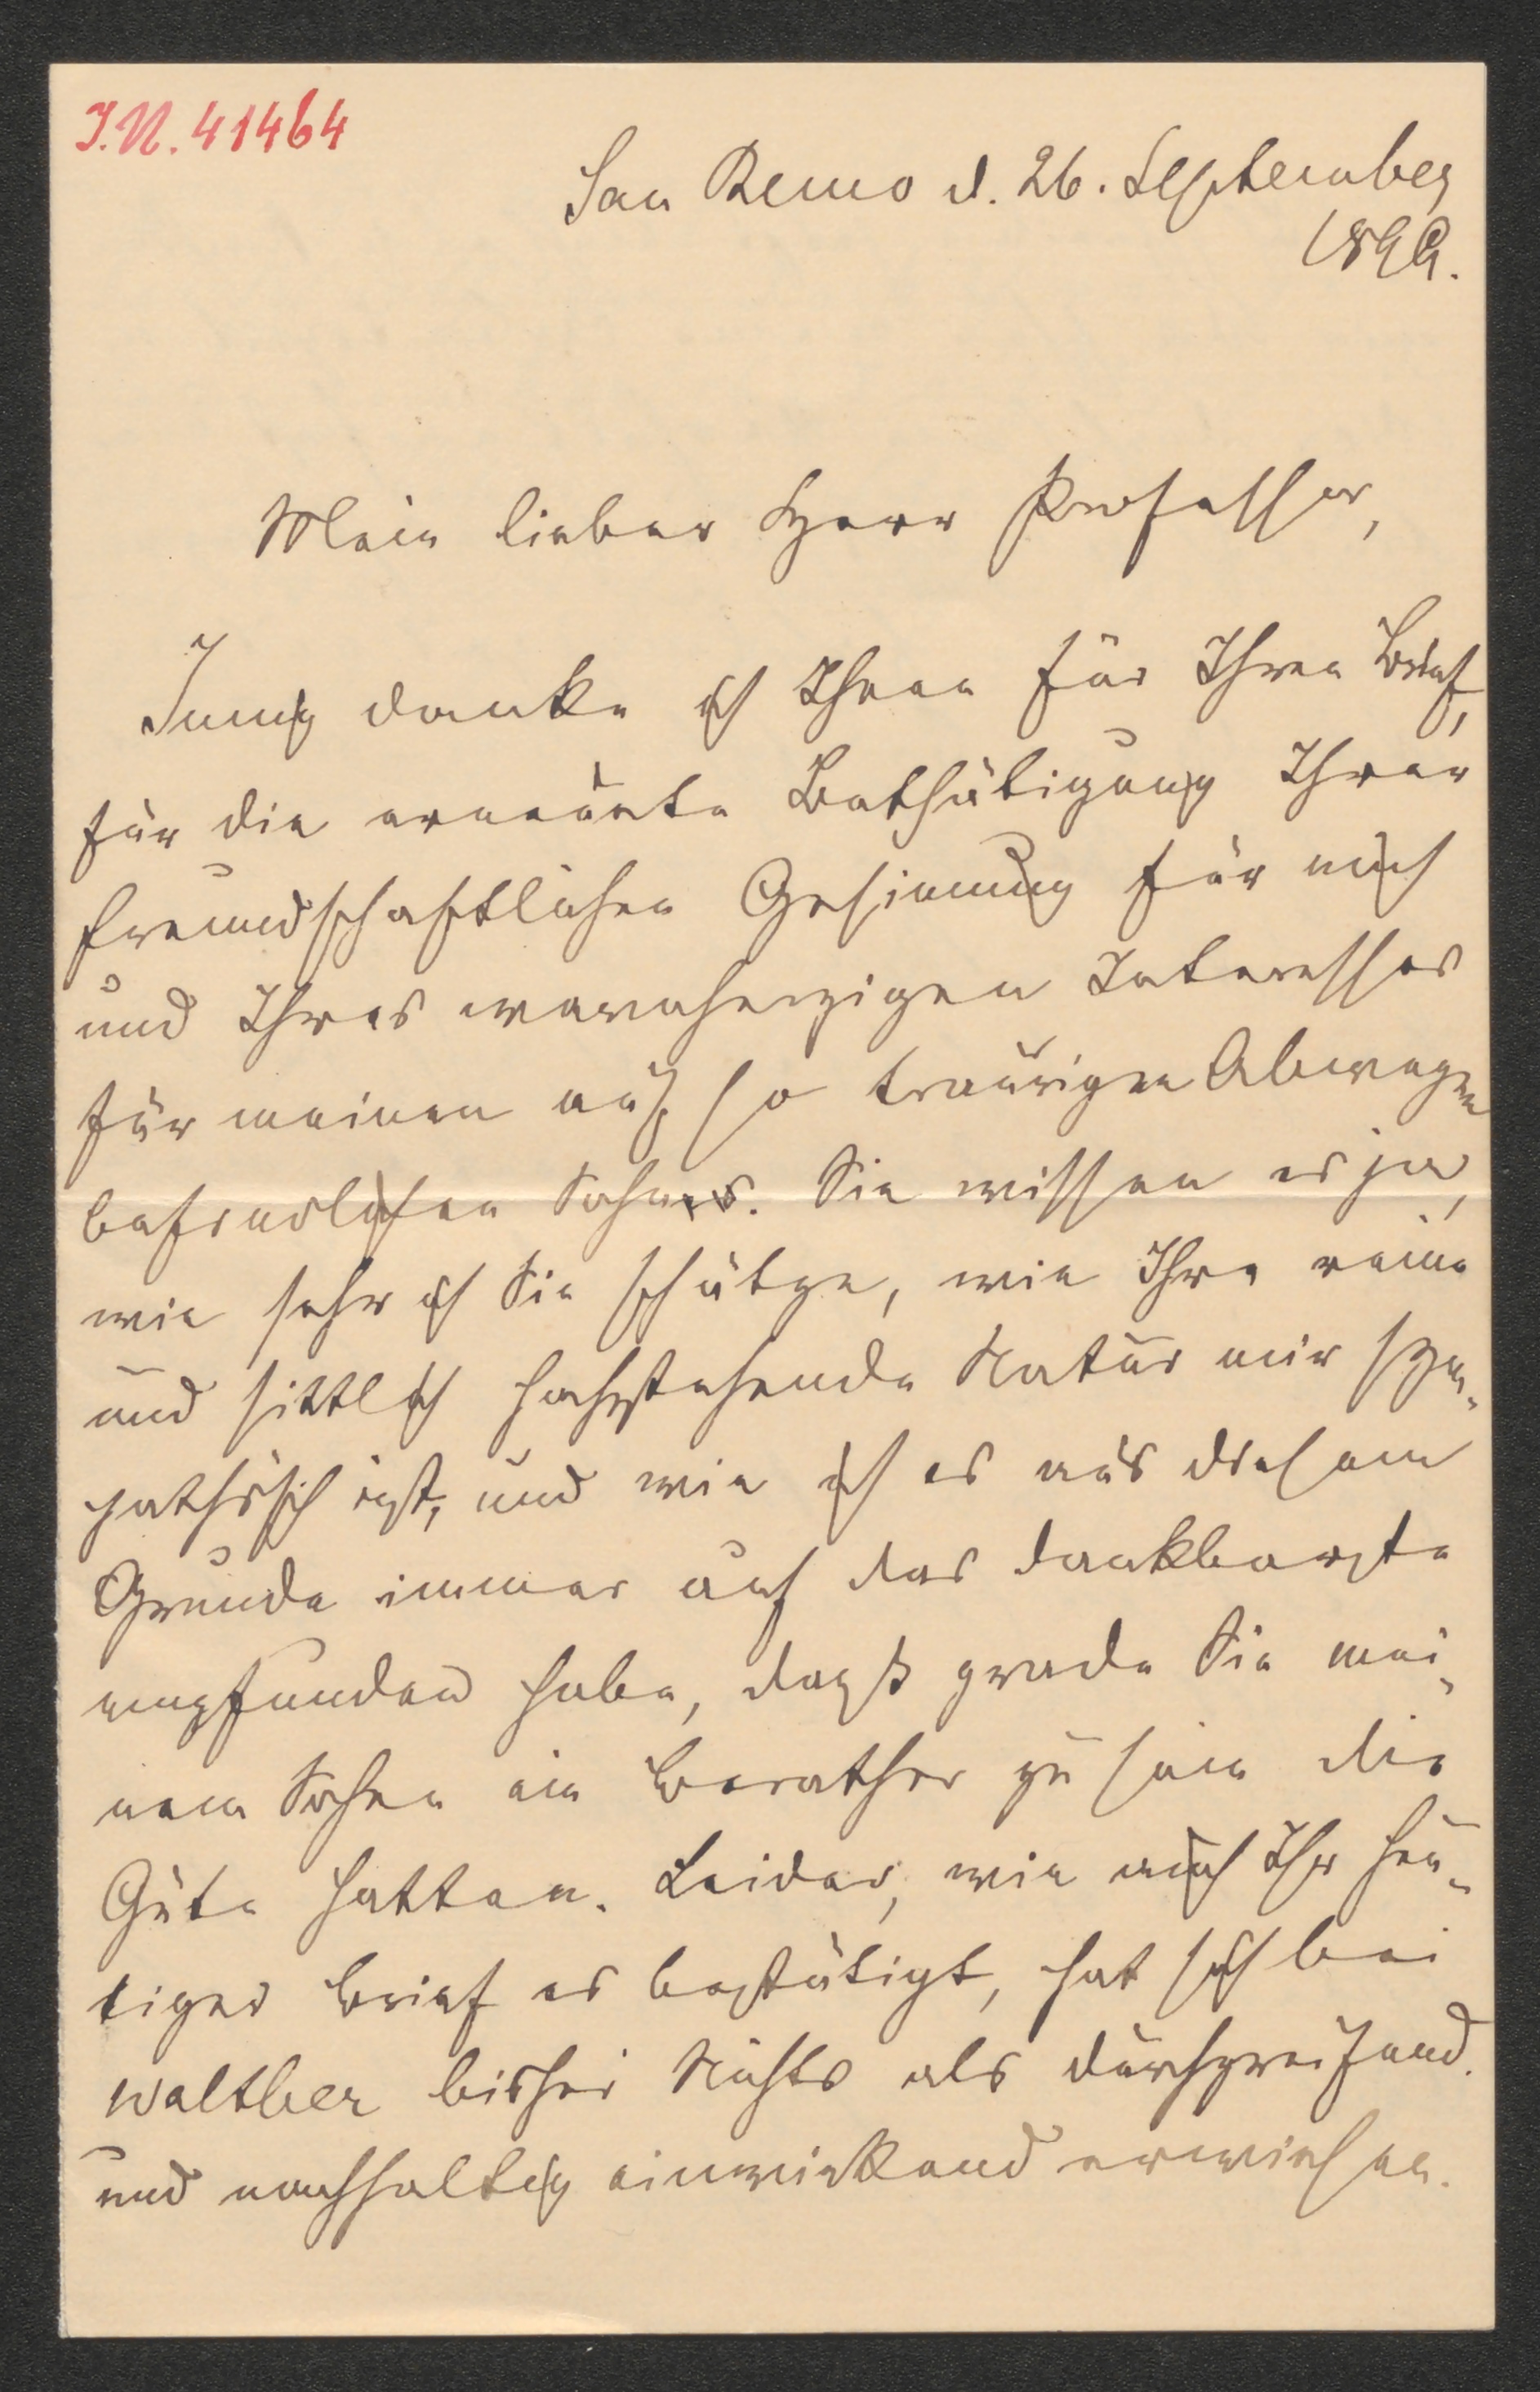 I.N. 41464
San Remo d. 26. September
1899.
Mein lieber Herr Professor,
Innig danke ich Ihnen für Ihren Brief,
für die erneuerte Bethätigung Ihrer
freundschaftlichen Gesinnung für mich
und Ihres warmherzigen Interesses
für meinen auf so traurigen Abwegen
befindlichen Sohnes. Sie wissen es ja,
wie sehr ich Sie schätze, wie Ihre reine
und sittlich hochstehende Natur mir sym-
pathisch ist, und wie ich es aus diesem
Grunde immer auf das dankbarste
empfunden habe, dass grade Sie mei-
nem Sohne ein Berather zu sein die
Güte hatten. Leider, wie auch Ihr heu-
tiger Brief es bestätigt, hat sich bei
Walther bisher Nichts als durchgreifend
und nachhaltig einwirkend erwiesen.